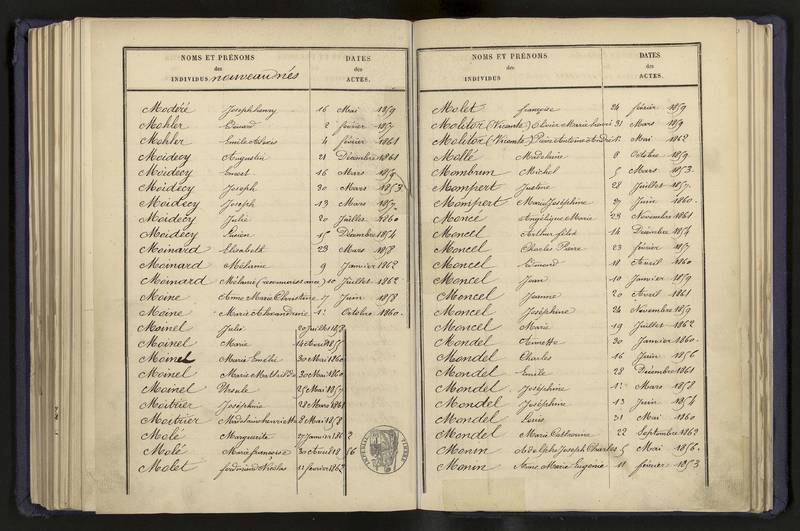 NOMS ET PRÉNOMS
des
INDIVIDUS nouveau nés
DATES
des
ACTES.
Modéré Joseph henry 16 Mai 1859
Mohler Edouard 2 février 1857
Mohler Emile Alois 4 février 1861
Moidecy Augustin 21 Décembre 1861
Moidecy Ernest 16 Mars 1859
Moidecy Joseph 30 Mars 1853
Moidecy Joseph 13 Mars 1857
Moidecy Julie 20 Juillet 1860
Moidecy Lucien 15 Décembre 1854
Moinard Elisabeth 23 Mars 1858
Moinard Mélanie 9 Janvier 1862
Moinard Mélanie (reconnaissance) 10 Juillet 1862
Moine Anne Marie Christine 7 Juin 1858
Moine Marie Alexandrine 1er Octobre 1860
Moinel Julie 20 Juillet 1858
Moinel Marie 14 Avril 1855
Moinel Marie Emélie 30 Mai 1860
Moinel Marie Mathilde 30 Mai 1860
Moinel Ursule 25 Mai 1857
Moitrier Joséphine 28 Mars 1861
Moitrier 8 Mai 1858
Molé Marguerite 27 Janvier 1862
Molé Marie françoise 30 Avril 1856
Molet ferdinand Nicolas 11 février 1862
NOMS ET PRÉNOMS
des
INDIVIDUS
DATES
des
ACTES.
Molet françoise 24 février 1859
Molitor (Vicante) Olivier Marie henri 31 Mars 1859
Molitor (Vicante) Pierre Antoine André 1er Mai 1862
Mollé Madeleine 8 Octobre 1859
Mombrun Michel 5 Mars 1853
Mompert Justine 28 Juillet 1857
Mompert Marie Joséphine 27 Juin 1860
Moncé Angélique Marie 23 Novembre 1861
Moncel Arthur félix 14 Décembre 1854
Moncel Charles Pierre 23 février 1857
Moncel Edmond 18 Avril 1860
Moncel Jean 10 Janvier 1859
Moncel Jeanne 20 Avril 1861
Moncel Joséphine 24 Novembre 1859
Moncel Marie 19 Juillet 1862
Mondel Annette 30 Janvier 1860
Mondel Charles 16 Juin 1856
Mondel Emile 28 Décembre 1861
Mondel Joséphine 1er Mars 1858
Mondel Joséphine 13 Juin 1854
Mondel Louis 31 Mai 1860
Mondel Marie Catherine 22 Septembre 1862
Monin Adolphe Joseph Charles 5 Mai 1856
Monin Anne Marie Eugénie 11 février 1853